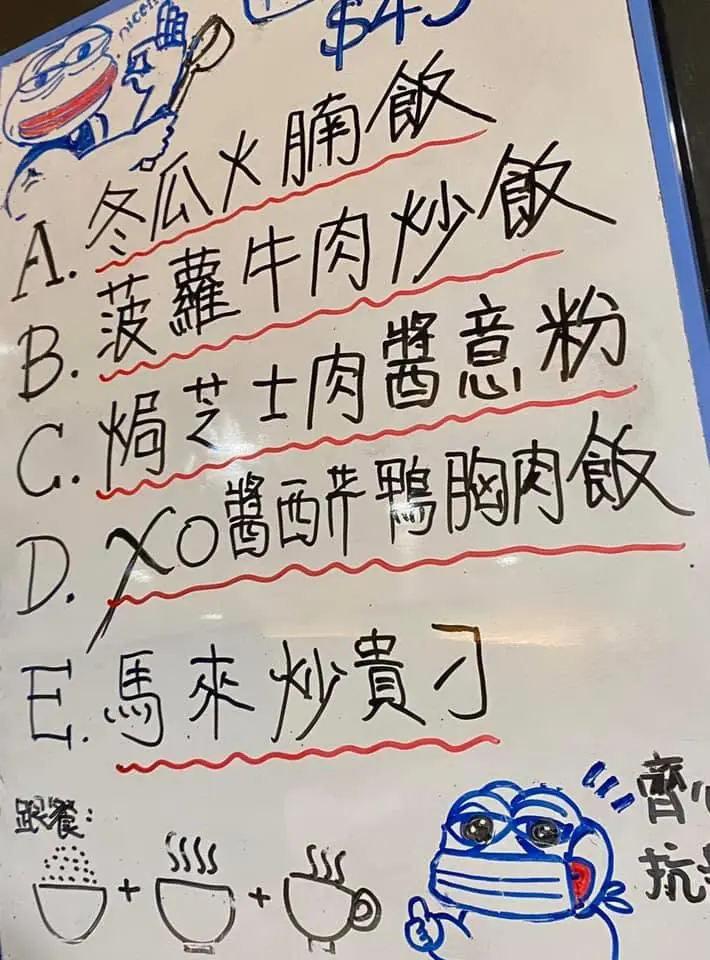 nice
$45
A. 冬瓜火腩飯
B. 菠蘿牛肉炒飯
C. 焗芝士肉醬意粉
D. XO醬西芹鴨胸肉飯
E. 馬來炒貴刁
跟餐:
+ +
齊心
抗